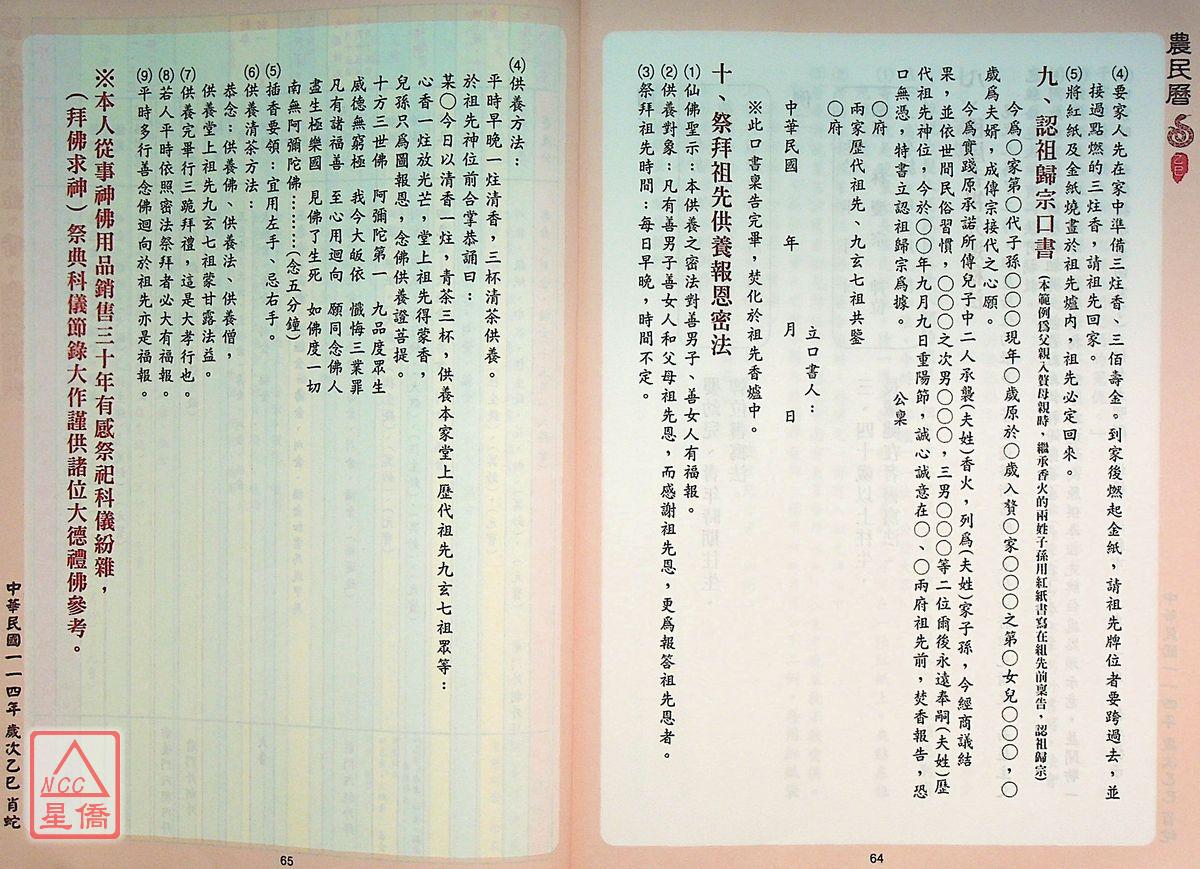 農民曆
乙巳
⑷要家人先在家中準備三炷香、三佰壽金。到家後燃起金紙，請祖先牌位者要跨過去，並
接過點燃的三炷香，請祖先回家。
⑸將紅紙及金紙燒盡於祖先爐內，祖先必定回來。
九、認祖歸宗口書（本範例爲父親入贅母親時，繼承香火的兩姓子孫用紅紙書寫在組先前稟告，認祖歸宗）
今爲○家第○代子孫○○○現年○歲原於○歲入贅○家○○○之第○女兒○○○，○
歲爲夫婿，成傳宗接代之心願。
今爲實踐原承諾所傳兒子中二人承襲(夫姓)香火，列爲(夫姓)家子孫，今經商議結
果，並依世間民俗習慣，○○○之次男○○○，三男○○○等二位爾後永遠奉嗣(夫姓)歷
代祖先神位，今於○○○年九月九日重陽節，誠心誠意在○、○兩府祖先前，焚香報告，恐
口無憑，特書立認祖歸宗爲據。
公稟
○府
兩家歷代祖先、九玄七祖共鑒
○府
立口書人：
中華民國　年　月　日
※此口書稟告完畢，焚化於祖先香爐中。
十、祭拜祖先供養報恩密法
⑴仙佛聖示：本供養之密法對善男子、善女人有福報。
⑵供養對象：凡有善男子善女人和父母祖先恩，而感謝祖先恩，更爲報答祖先恩者。
⑶祭拜祖先時間：每日早晚，時間不定。
64
⑷供養方法：
平時早晚一炷清香，三杯清茶供養。
於祖先神位前合掌恭誦曰：
某○今日以清香一炷，青茶三杯，供養本家堂上歷代祖先九玄七祖眾等：
心香一炷放光芒，堂上祖先得蒙香，
兒孫只爲圖報恩，念佛供養證菩提。
十方三世佛　阿彌陀第一　九品度眾生
威德無窮極　我今大皈依　懺悔三業罪
凡有諸福善　至心用迴向　願同念佛人
盡生極樂國　見佛了生死　如佛度一切
南無阿彌陀佛………（念五分鐘）
⑸插香要領：宜用左手、忌右手。
⑹供養清茶方法：
恭念：供養佛、供養法、供養僧，
供養堂上祖先九玄七祖蒙甘露法益。
⑺供養完畢行三跪拜禮，這是大孝行也。
⑻若人平時依照密法祭拜者必大有福報。
⑼平時多行善念佛迴向於祖先亦是福報。
※本人從事神佛用品銷售三十年有感祭祀科儀紛雜，
（拜佛求神）祭典科儀節錄大作謹供諸位大德禮佛參考。
中華民國一一四年歲次乙巳肖蛇
65
NCC
星僑